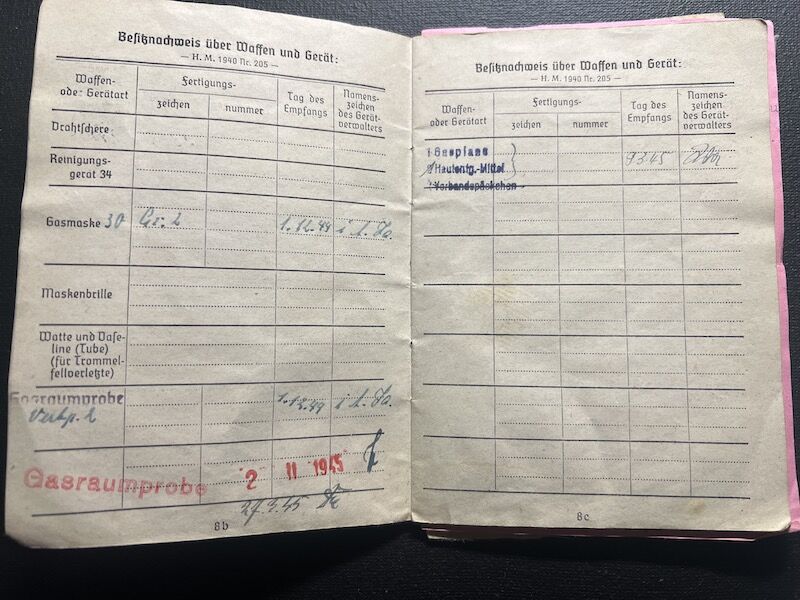 Besitznachweis über Waffen und Gerät:
— H. M. 1940 Nr. 205 —
Waffen- oder Gerätart
Fertigungs-
zeichen
nummer
Tag des Empfangs
Namens- zeichen des Gerät- verwalters
Drahtschere
Reinigungs-
gerät 34
Gasmaske 30 Gr. 2 1.12.44
Maskenbrille
Watte und Vase-
line (Tube)
(für Trommel-
fellverletzte)
Gasraumprobe 1.12.44
Gasraumprobe 2 II 1945
27.3.45
8b
Besitznachweis über Waffen und Gerät:
— H. M. 1940 Nr. 205 —
Waffen- oder Gerätart
Fertigungs-
zeichen
nummer
Tag des Empfangs
Namens- zeichen des Gerät- verwalters
1 Gasplane
Hautentg.-Mittel
Verbandspäckchen
8c